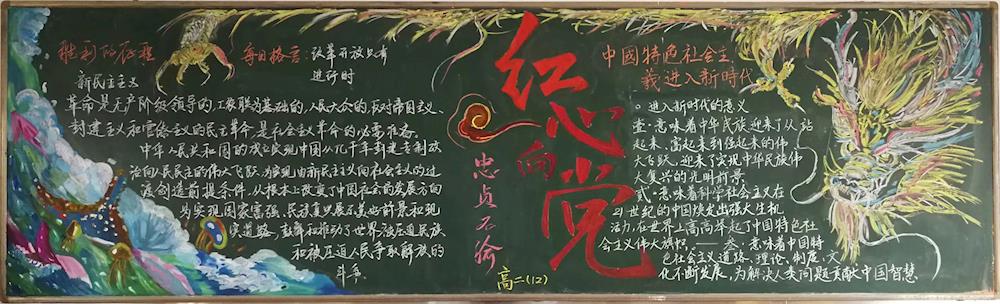 胜利的征程
新民主主义
革命是无产阶级领导的,工农联为基础的,人民大众的,反对帝国主义、
封建主义和官僚主义的民主革命,是社会主义革命的必需准备。
中华人民共和国的成立实现中国从几千年封建专制政
治向人民民主的伟大飞跃,为实现由新民主主义向社会主义的过
渡创造前提条件,从根本上改变了中国社会的发展方向
为实现国家富强、民族复兴展示美好前景和现
实道路,鼓舞和推动了世界被压迫民族
和被压迫人民争取解放的
斗争
每日格言:改革开放只有
进行时
红心向党
忠贞不渝
高二(12)
中國特色社会主
義進入新時代
○进入新时代的意义
壹·意味着中华民族迎来了从站
起来、富起来到强起来的伟
大飞跃,迎来了实现中华民族伟
大复兴的光明前景。
贰·意味着科学社会主义在
21世纪的中国焕发出强大生机
活力,在世界上高高举起了中国特色社
会主义伟大旗帜。——叁·意味着中国特
色社会主义道路、理论、制度、文
化不断发展,为解决人类问题贡献中国智慧